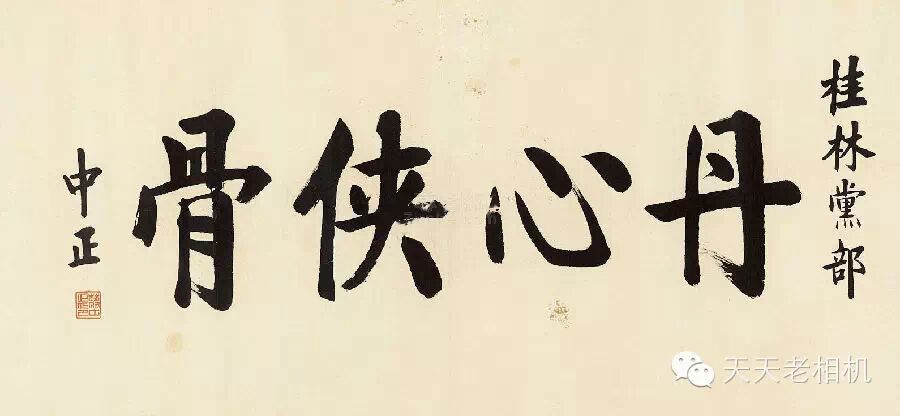 桂林黨部
丹心侠骨
中正
天天老相机